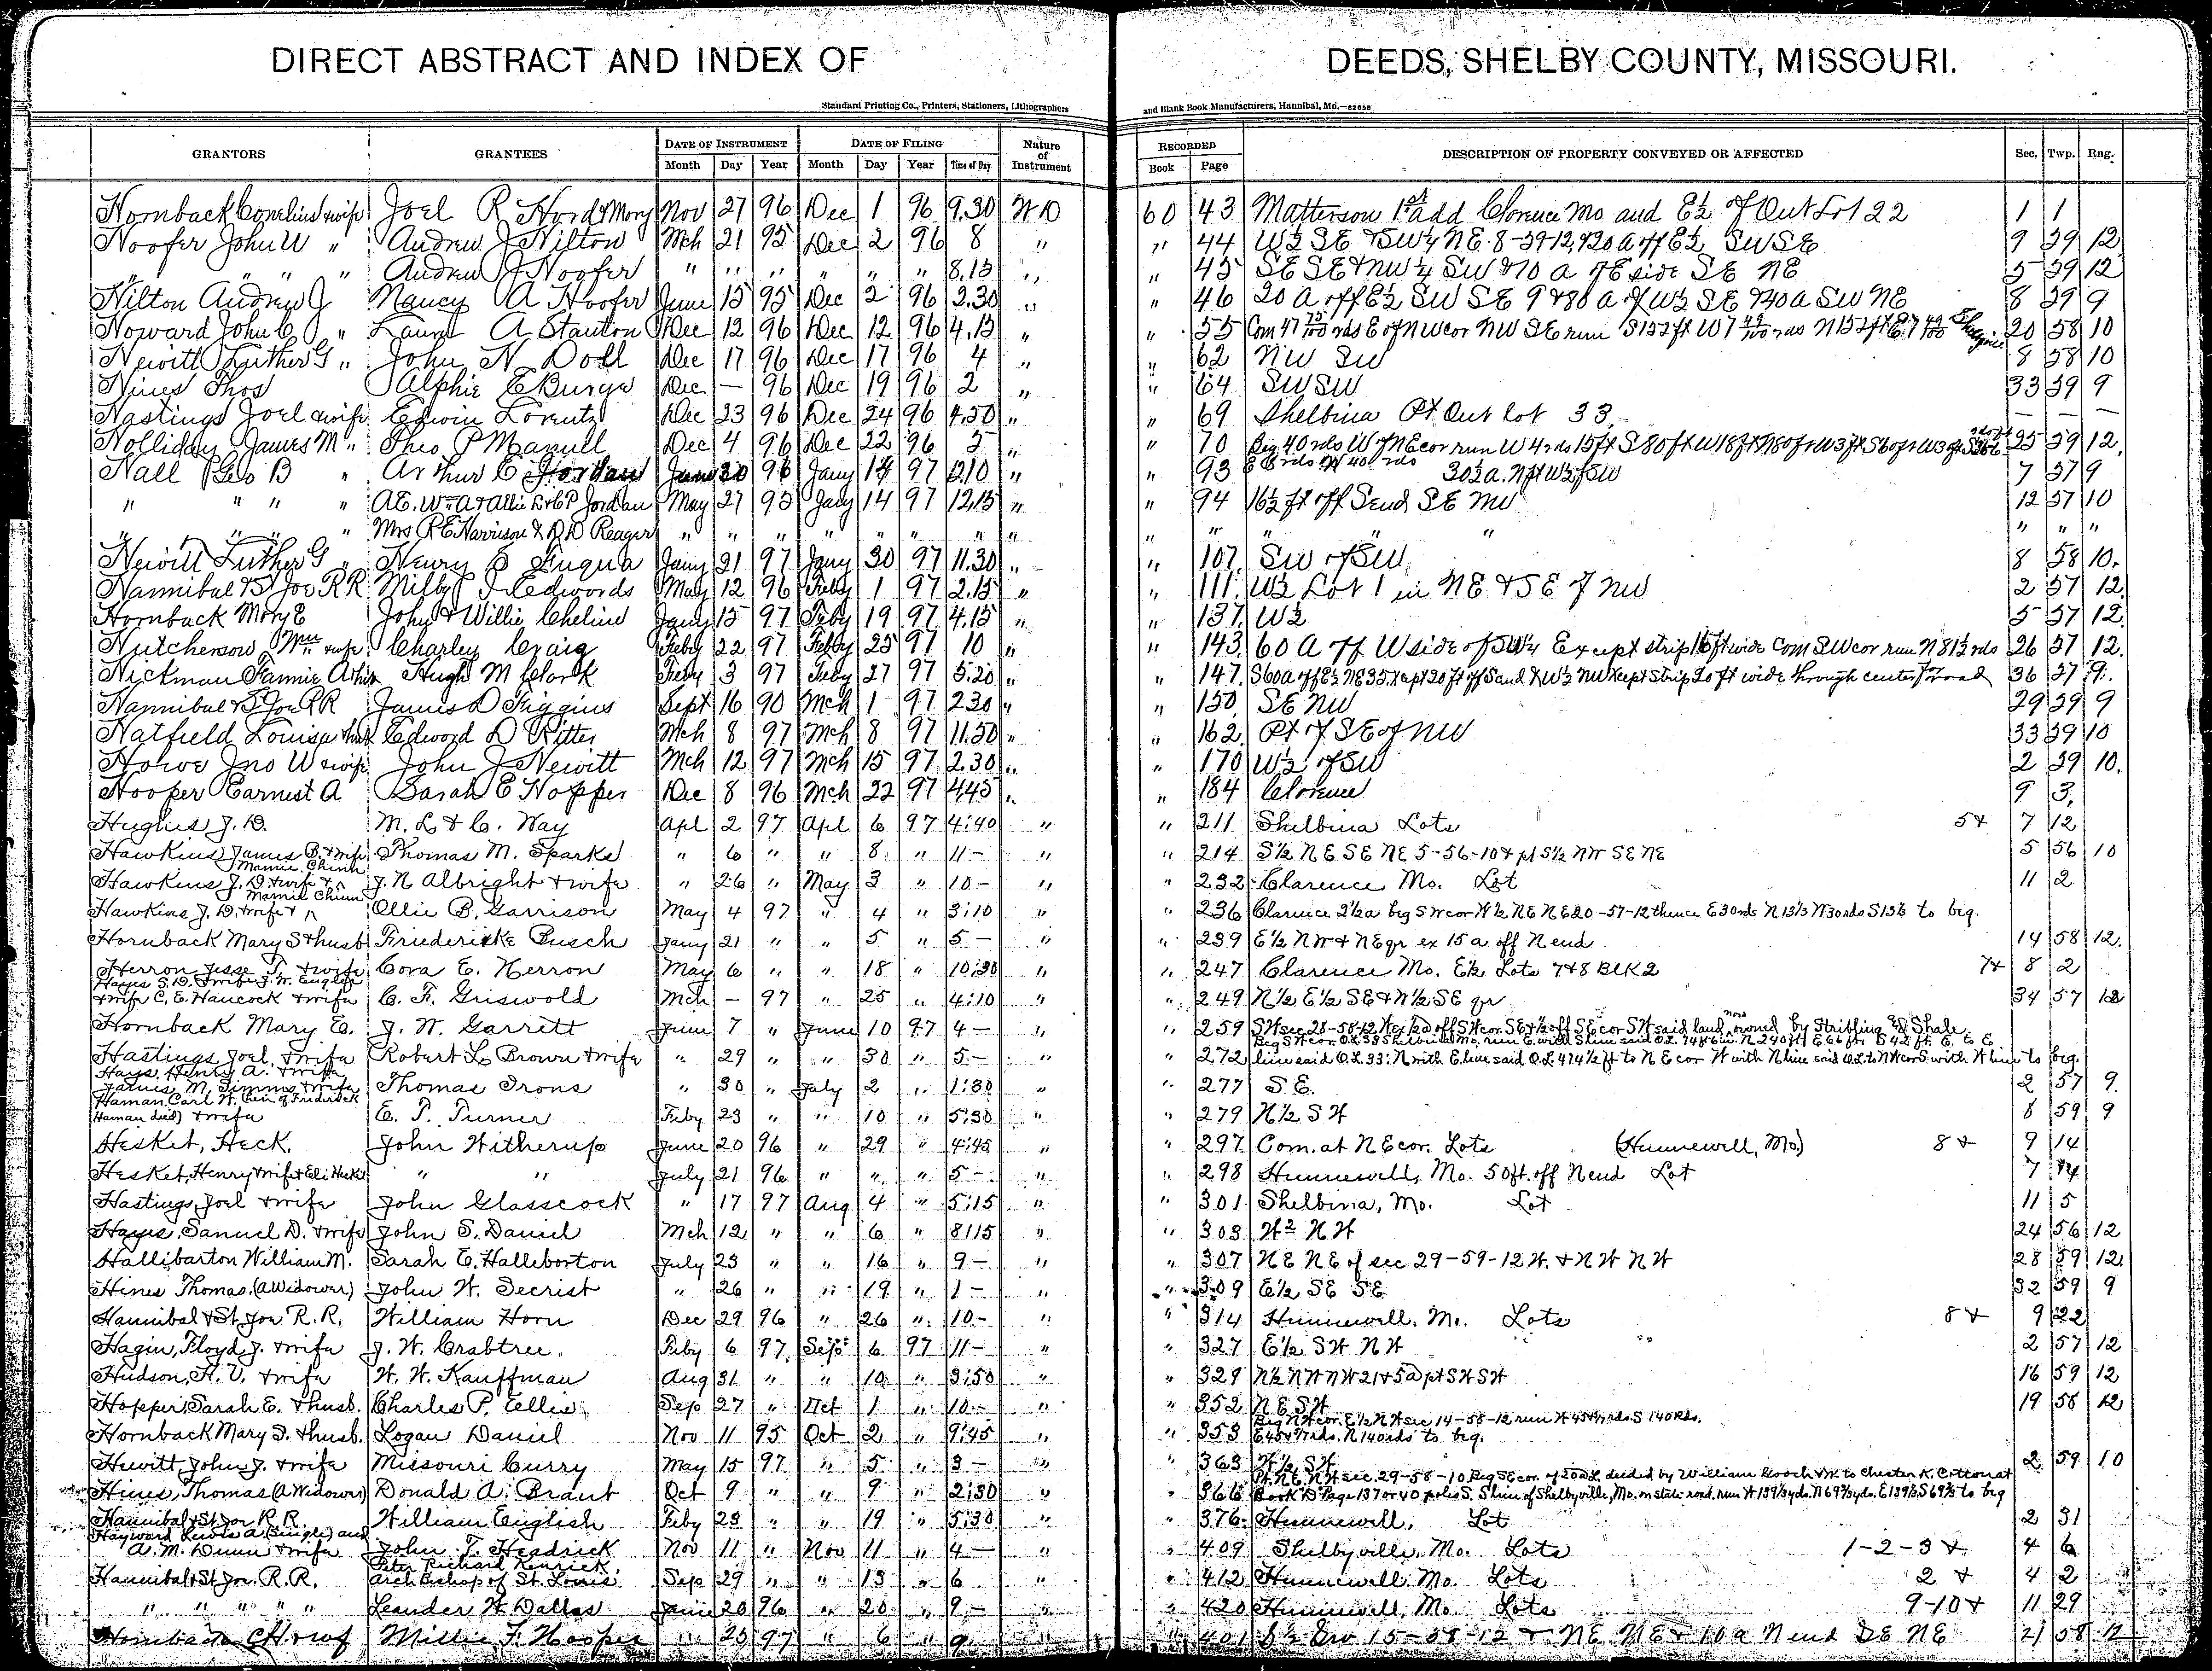 DIRECT ABSTRACT AND INDEX OF DEEDS, SHELBY COUNTY, MISSOURI.
Standard Printing Co., Printers, Stationers, Lithographers and Blank Book Manufacturers, Hannibal, Mo.—82658
GRANTORS GRANTEES DATE OF INSTRUMENT DATE OF FILING Nature of Instrument RECORDED DESCRIPTION OF PROPERTY CONVEYED OR AFFECTED Sec. Twp. Rng.
Month Day Year Month Day Year Time of Day Book Page
Hornback Cornelius & wife Joel R Hord & Mary Nov 27 96 Dec 1 96 9.30 W D 60 43 Matterson 1st add Clarence Mo and E½ of Out Lot 22 1 1
Hoofer John W " Andrew J Hilton Mch 21 95 Dec 2 96 8 " " 44 W½ SE & SW¼ NE 8-59-12, & 20 A off E½ SW SE 9 59 12
" " " " Andrew J Hoofer " " " " " " 8.15 " " 45 SE SE & NW¼ SW & 10 a of E side SE NE 5 59 12
Hilton Andrew J Nancy A Hoofer June 15 95 Dec 2 96 2.30 " " 46 20 A off E½ SW SE 9 & 80 a of W½ SE & 40 a SW NE 8 59 9
Howard John C " Laura A Stanton Dec 12 96 Dec 12 96 4.15 " " 55 Com 47 rds E of NW cor NW SE run S 132 ft W 7 rds N 132 ft E 7 20 58 10
Hewitt Luther G " John N Doll Dec 17 96 Dec 17 96 4 " " 62 NW SW 8 58 10
Hines Thos Alphie E Burge Dec — 96 Dec 19 96 2 " " 64 SW SW 33 59 9
Hastings Joel & wife Edwin Lorentz Dec 23 96 Dec 24 96 4.50 " " 69 Shelbina Pt Out lot 33 — — —
Holliday James M " Theo P Manull Dec 4 96 Dec 22 96 5 " " 70 Beg 40 rds W of NE cor run W 4 rds 15 ft S 80 ft W 18 ft N 80 ft W 3 ft S 60 ft W 3 25 59 12
Hall Geo B " Arthur E Jordan June 30 96 Jany 14 97 12.10 " " 93 30½ a. N pt W½ of SW 7 57 9
" " " " A.E. Wm A & Allie E & C P Jordan May 27 95 Jany 14 97 12.15 " " 94 16½ ft off S end SE NW 12 57 10
" " " " Mrs R E Harrison & D D Reager " " " " " " " " " " " " " "
Hewitt Luther G " Henry B Fuqua Jany 21 97 Jany 30 97 11.30 " " 107 SW of SW 8 58 10
Hannibal & St Joe RR Milby J Edwards May 12 96 Feby 1 97 2.15 " " 111 W½ Lot 1 in NE & SE of NW 2 57 12
Hornback Mary E John & Willie Cheline Jany 15 97 Feby 19 97 4.15 " " 137 W½ 5 57 12
Hutcherson Wm & wife Charley Craig Feby 22 97 Febby 25 97 10 " " 143 60 A off W side of SW¼ Except strip 16 ft wide Com SW cor run N 81½ rds 26 57 12
Hickman Fannie A & hus Hugh M Clark Feby 3 97 Feby 27 97 5.20 " " 147 S 60 a off E½ NE 35 Xcept 20 ft off S end & W½ NW Xcept strip 20 ft wide through center for road 36 57 9
Hannibal & St Joe RR James D Figgins Sept 16 90 Mch 1 97 2.30 " " 150 SE NW 29 59 9
Hatfield Louisa & hus Edward D Ritter Mch 8 97 Mch 8 97 11.50 " " 162 Pt of SE of NW 33 59 10
Howe Jno W & wife John J Hewitt Mch 12 97 Mch 15 97 2.30 " " 170 W½ of SW 2 59 10
Hooper Earnest A Sarah E Hopper Dec 8 96 Mch 22 97 4.45 " " 184 Clarence 9 3
Hughes J. D. M. L. & C. Way Apl 2 97 Apl 6 97 4:40 " " 211 Shelbina Lots 5 & 7 12
Hawkins James B. & wife Thomas M. Sparks " 6 " " 8 " 11— " " 214 S½ NE SE NE 5-56-10 & pt S½ NW SE NE 5 56 10
Hawkins J. D. & wife & Mamie Chinn J. N Albright & wife " 26 " May 3 " 10— " " 232 Clarence Mo. Lot 11 2
Hawkins J. D. & wife & Mamie Chinn Ollie B. Garrison May 4 97 " 4 " 3:10 " " 236 Clarence 2½ a beg SW cor W½ NE NE 20-57-12 thence E 30 rds N 13⅓ W 30 rds S 13⅓ to beg.
Hornback Mary S & husb Friedericke Busch Jany 21 " " 5 " 5— " " 239 E½ NW & NE qr ex 15 a off N end 14 58 12
Herron Jesse T. & wife Cora E. Herron May 6 " " 18 " 10:30 " " 247 Clarence Mo. E½ Lots 7 & 8 Blk 2 7 & 8 2
Hayes S. D. & wife J. W. English & wife C. E. Hancock & wife C. F. Griswold Mch — 97 " 25 " 4:10 " " 249 N½ E½ SE & W½ SE qr 34 57 12
Hornback Mary E. J. W. Garrett June 7 " June 10 97 4— " " 259 SW sec 28-58-12 W ex ½ a off SW cor. SE & ½ off SE cor SW said land now owned by Stribling & J Shale
Hastings Joel & wife Robert L Brown & wife " 29 " " 30 " 5— " " 272 Beg SW cor. O.L. 33 Shelbina Mo. run E. with S line said O.L. 74 ft 6 in N 240 ft E 66 ft S 42 ft E. to E line said O.L. 33; N with E. line said O.L. 414½ ft to NE cor W with N line said O.L. to NW cor S. with W line to beg.
Hays, Henry A. & wife James M. Simms & wife Thomas Irons " 30 " July 2 " 1:30 " " 277 S E. 2 57 9
Haman Carl W. (heir of Friederick Haman decd) & wife E. T. Turner Feby 23 " " 10 " 5:30 " " 279 N½ SW 8 59 9
Hesket, Heck. John Witherup June 20 96 " 29 " 4:45 " " 297 Com. at NE cor. Lots (Hunnewell, Mo.) 8 & 9 14
Hesket, Henry & wife & Eli Hesket " " July 21 96 " " " 5— " " 298 Hunnewell, Mo. 50 ft. off N end Lot 7 14
Hastings, Joel & wife John Glasscock " 17 97 Aug 4 " 5:15 " " 301 Shelbina, Mo. Lot 11 5
Hayes, Samuel D. & wife John S. Daniel Mch 12 " " 6 " 8:15 " " 303 W² NW 24 56 12
Hallibarton William M. Sarah E. Halleborton July 23 " " 16 " 9— " " 307 NE NE of sec 29-59-12 W. & NW NW 28 59 12
Hines Thomas (A Widower) John W. Secrist " 26 " " 19 " 1— " " 309 E½ SE SE 32 59 9
Hannibal & St Joe R. R. William Horn Dec 29 96 " 26 " 10— " " 314 Hunnewell, Mo. Lots 8 & 9 22
Hagin, Floyd J. & wife J. W. Crabtree Feby 6 97 Sept 6 97 11— " " 327 E½ SW NW 2 57 12
Hudson, H. V. & wife W. W. Kauffman Aug 31 " " 10 " 3:50 " " 329 N½ NW NW 21 & 5 a pt SW SW 16 59 12
Hopper, Sarah E. & husb. Charles P. Ellis Sep 27 " Oct 1 " 10— " " 352 NE SW 19 58 12
Hornback Mary S. & husb. Logan Daniel Nov 11 95 Oct 2 " 9:45 " " 353 Beg NW cor. E½ NW sec 14-58-12 run W rds. S 140 Rds. rds. N 140 rds to beg.
Hewitt, John J. & wife Missouri Curry May 15 97 " 5 " 3— " " 363 W½ SW 2 59 10
Hines, Thomas (A Widower) Donald A. Brant Oct 9 " " 9 " 2:30 " " 366 Pt. NE NW sec. 29-58-10 Beg SE cor. of deeded by William Gooch & W. to Chester K. Cotton at Book "D" Page 137 or 40 poles S. S line of Shelbyville, Mo. on state road, run W 139⅓ yds. N 69⅔ yds. E 139⅓ S 69⅔ to beg
Hannibal & St Joe R. R. William English Feby 23 " " 19 " 5:30 " " 376 Hunnewell, Lot 2 31
Hayward Lewis A (Single) and A. M. Dunn & wife John T. Headrick Nov 11 " Nov 11 " 4— " " 409 Shelbyville, Mo. Lots 1-2-3 & 4 6
Hannibal & St Joe. R.R. Peter Richard Kenrick, Arch Bishop of St. Louis Sep 29 " " 13 " 6 " " 412 Hunnewell, Mo. Lots 2 & 4 2
" " " " " Leander W. Dallas June 20 96 " 20 " 9— " " 420 Hunnewell, Mo Lots 9-10 & 11 29
Hornback Millie F. Hooper " 25 97 " 6 " 9 " " 401 15-58-12 & NE NE & 10 a N end SE NE 21 58 12